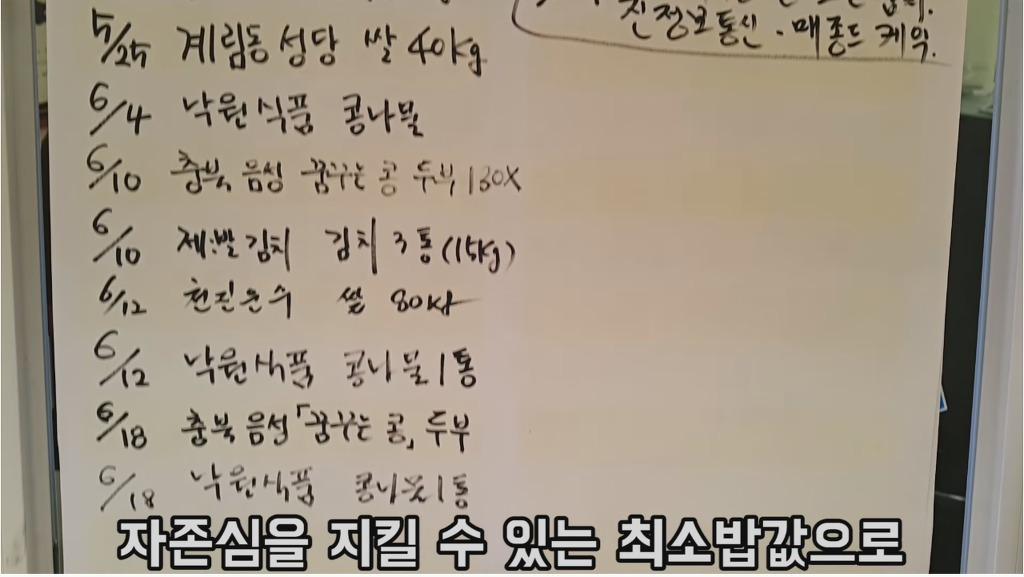 진정보통신 · 매종드 케익.
5/25 계림동 성당 쌀 40kg
6/4 낙원식품 콩나물
6/10 충북 음성 꿈꾸는 콩 두부 130X
6/10 김치 김치 3통 (15kg)
6/12 천진운수 쌀 80
6/12 낙원식품 콩나물 1통
6/18 충북 음성「꿈꾸는 콩」두부
6/18 낙원식품 콩나물 1통
자존심을 지킬 수 있는 최소밥값으로